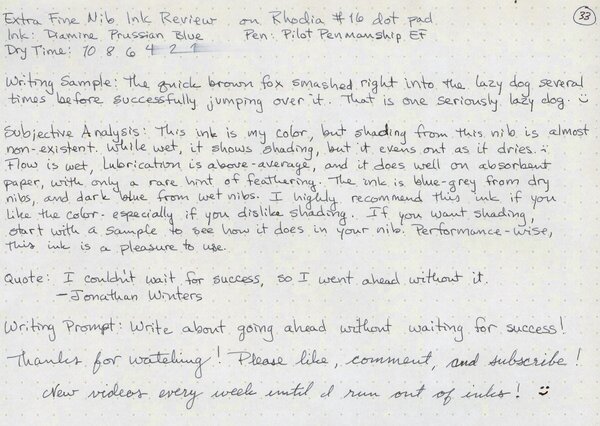 Extra Fine Nib Ink Review on Rhodia #16 dot pad
33
Ink: Diamine Prussian Blue Pen: Pilot Penmanship EF
Dry Time: 10 8 6 4 2 1
Writing Sample: The quick brown fox smashed right into the lazy dog several
times before successfully jumping over it. That is one seriously lazy dog. :)
Subjective Analysis: This ink is my color, but shading from this nib is almost
non-existent. While wet, it shows shading, but it evens out as it dries.
Flow is wet, lubrication is above-average, and it does well on absorbent
paper, with only a rare hint of feathering. The ink is blue-grey from dry
nibs, and dark blue from wet nibs. I highly recommend this ink if you
like the color - especially if you dislike shading. If you want shading,
start with a sample to see how it does in your nib. Performance-wise,
this ink is a pleasure to use.
Quote: I couldn't wait for success, so I went ahead without it.
- Jonathan Winters
Writing Prompt: Write about going ahead without waiting for success!
Thanks for watching! Please like, comment, and subscribe!
New videos every week until I run out of inks! :)